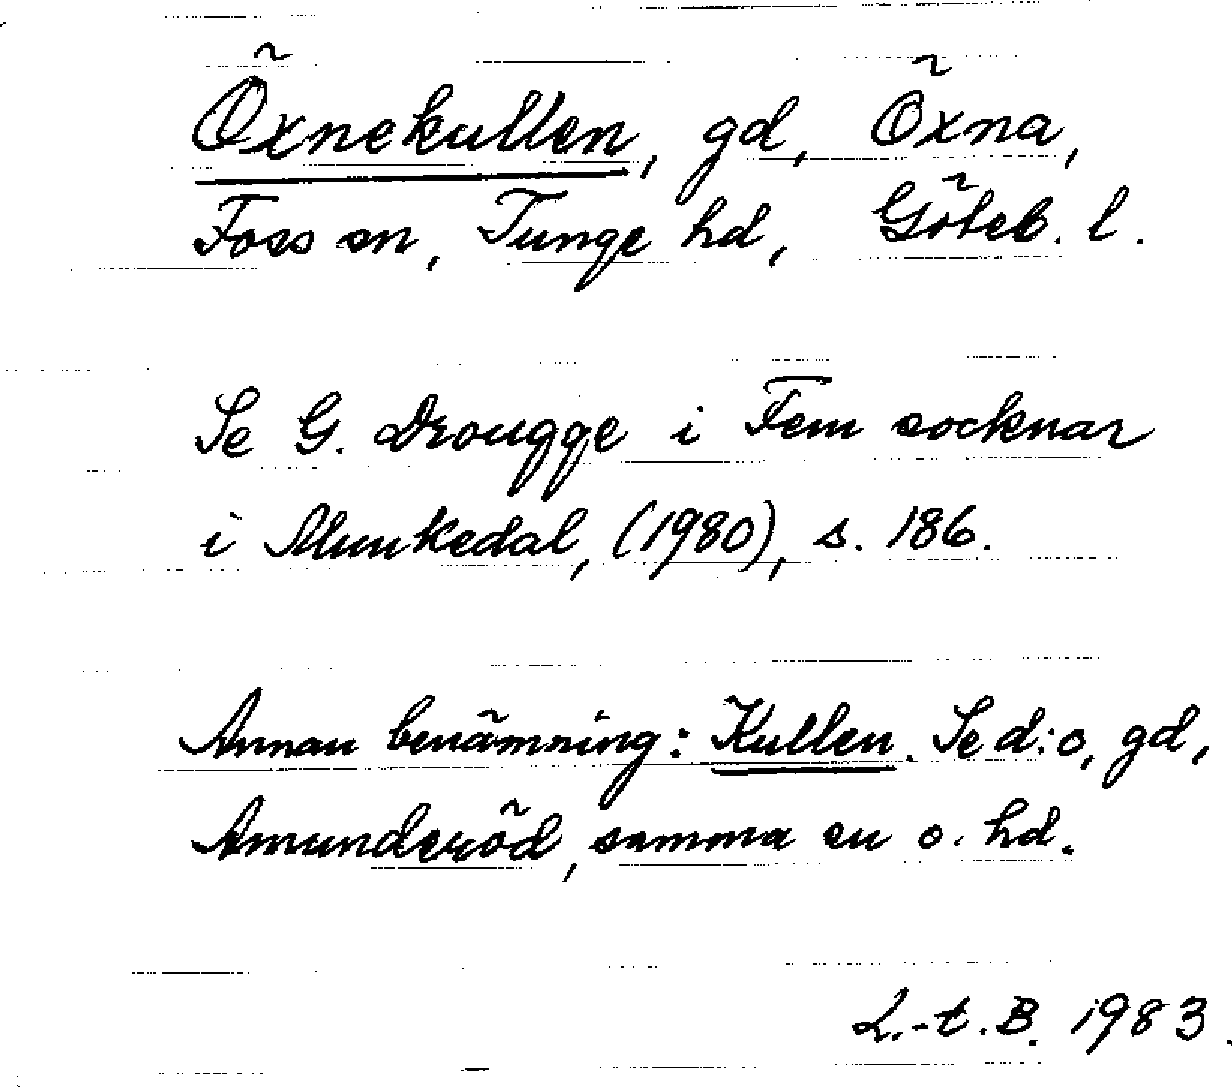 Öxnekullen, gd, Öxna,
Foss sn, Tunge hd, Göteb. l.
Se G. Drougge i Fem socknar
i Munkedal, (1980), s. 186.
Annan benämning: Kullen. Se d:o, gd,
Amunderöd, samma sn o. hd.
L.-t. B. 1983.